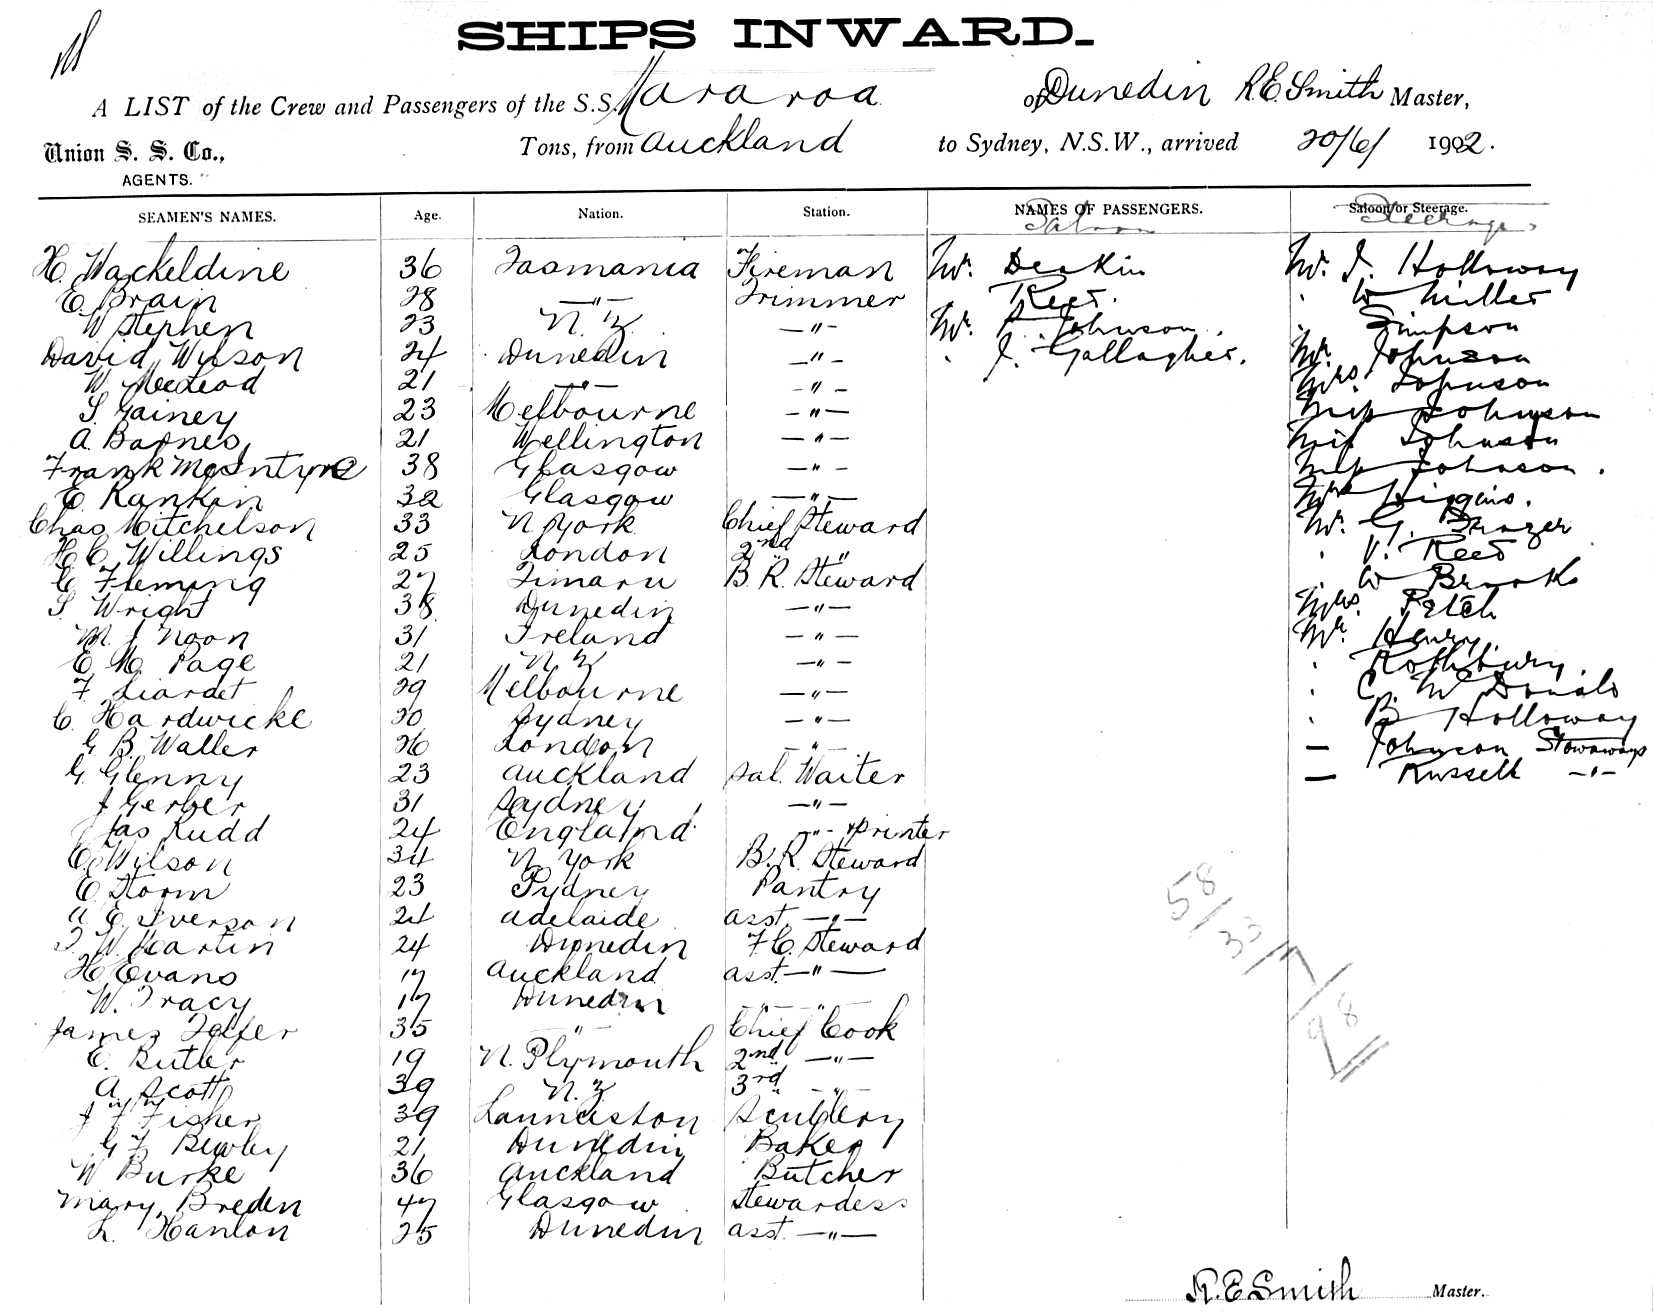 SHIPS INWARD.
A LIST of the Crew and Passengers of the S.S. Mararoa of Dunedin R.E. Smith Master,
Union S. S. Co., Tons, from Auckland to Sydney, N.S.W., arrived 20/6/ 1902.
AGENTS.
SEAMEN'S NAMES. Age. Nation. Station. NAMES OF PASSENGERS. Saloon or Steerage.
Saloon Steerage
H. Wackeldine 36 Tasmania Fireman Mr. Deakin Mr. J. Holloway
E. Brain 28 —"— Trimmer Rees. " W Miller
W Stephen 23 N.Z. —"— Mr. Johnson. Simpson
David Wilson 24 Dunedin —"— " J. Gallagher. Mr. Johnson
W. McLeod 21 —"— —"— Mrs. Johnson
S. Gainey 23 Melbourne —"— Miss Johnson
A. Barnes 21 Wellington —"— Miss Johnson
Frank McIntyre 38 Glasgow —"— Miss Johnson.
E. Rankin 32 Glasgow —"— Higgins.
Chas Mitchelson 33 N York Chief Steward Mr. G.
H. C. Willings 25 London 2nd " " V. Rees
C Fleming 27 Timaru B. R. Steward " W Brook
S. Wright 38 Dunedin —"— Mrs. Petch
M. J Noon 31 Ireland —"— Mr. Henry.
E. M. Page 21 N Z —"— " Rothbury.
F. Liardet 29 Melbourne —"— " C. McDonald
C. Hardwicke 20 Sydney —"— " B. Holloway
G B. Waller 26 London —"— — Johnson Stowaways
G Glenny 23 Auckland Sal. Waiter — Russell —"—
J Gerber 31 Sydney —"—
Jas Rudd 24 England —"— & printer
C. Wilson 34 N York B. R. Steward
C Storm 23 Sydney Pantry
A. E. Iverson 21 Adelaide asst. —"—
T. W. Martin 24 Dunedin F. C. Steward
H Evans 17 Auckland asst. —"—
W. Tracy 17 Dunedin —"— "
James Telfer 35 " Chief Cook
E. Butler 19 N. Plymouth 2nd —"—
A. Scott 39 N.Z 3rd —"—
J F Fisher 39 Launceston Scullery
G F. Bewley 21 Dunedin Baker
W Burke 36 Auckland Butcher
Mary Breden 47 Glasgow Stewardess
L. Hanlon 25 Dunedin asst. —"—
58/33/7/
98
R.E Smith Master.